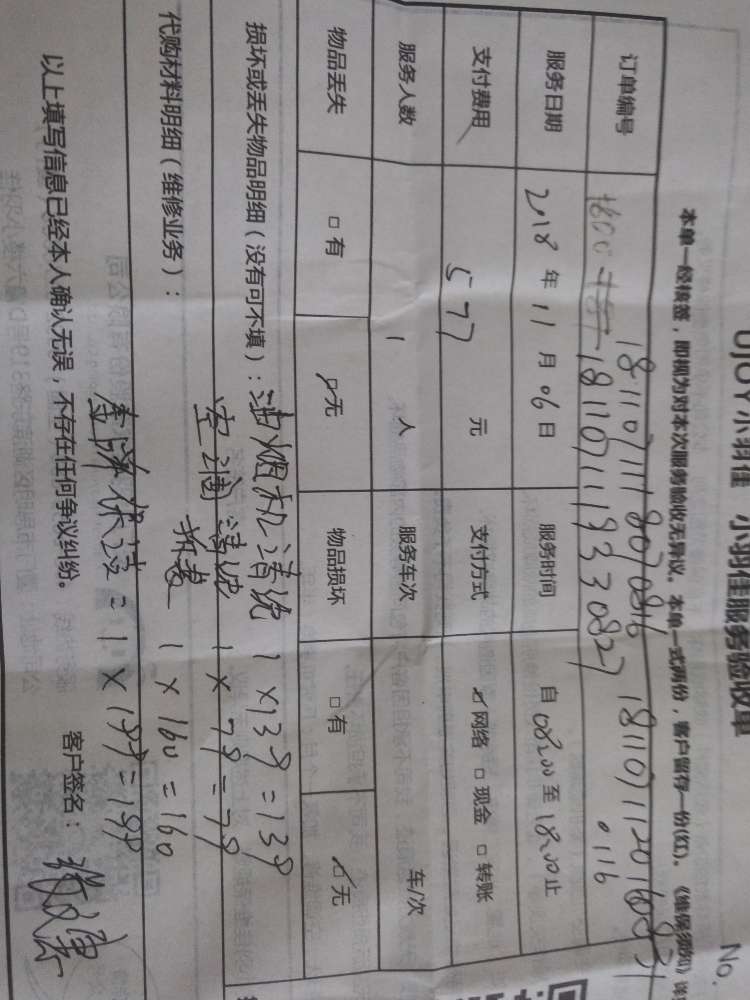 UJOY小羽佳 小羽佳服务验收单
No.
本单一经核签，即视为对本次服务验收无异议。本单一式两份，客户留存一份(红)。《维保须知》
订单编号
服务日期 2018 年 11 月 06 日 服务时间 自 08:00 至 18:00 止
支付费用 577 元 支付方式 ☑网络 □现金 □转账
服务人数 1 人 服务车次 车/次
物品丢失 □有 ☑无 物品损坏 □有 ☑无
损坏或丢失物品明细（没有可不填）：油烟机清洗 1×139=139
清洗 1×79=79
代购材料明细（维修业务）： 1×160=160
=1×199=199
以上填写信息已经本人确认无误，不存在任何争议纠纷。 客户签名：